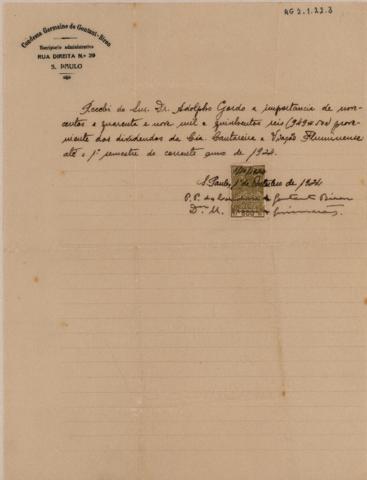 AG 2.1.22.3
Condessa Germaine de Gontaut-Biron
Escriptorio administrativo
RUA DIREITA N.º 39
S. PAULO
Recebi do Snr. Dr. Adolpho Gordo a importancia de nove-
centos e quarenta e nove mil e quinhentos reis (949$500) prove-
niente dos dividendos da Cia. Cantareira e Viação Fluminense
até o 1º semestre do corrente anno de 1924.
S. Paulo, 1º de 1924
P. P. da Condessa de Gontaut Biron
Dr. M. Guimarães